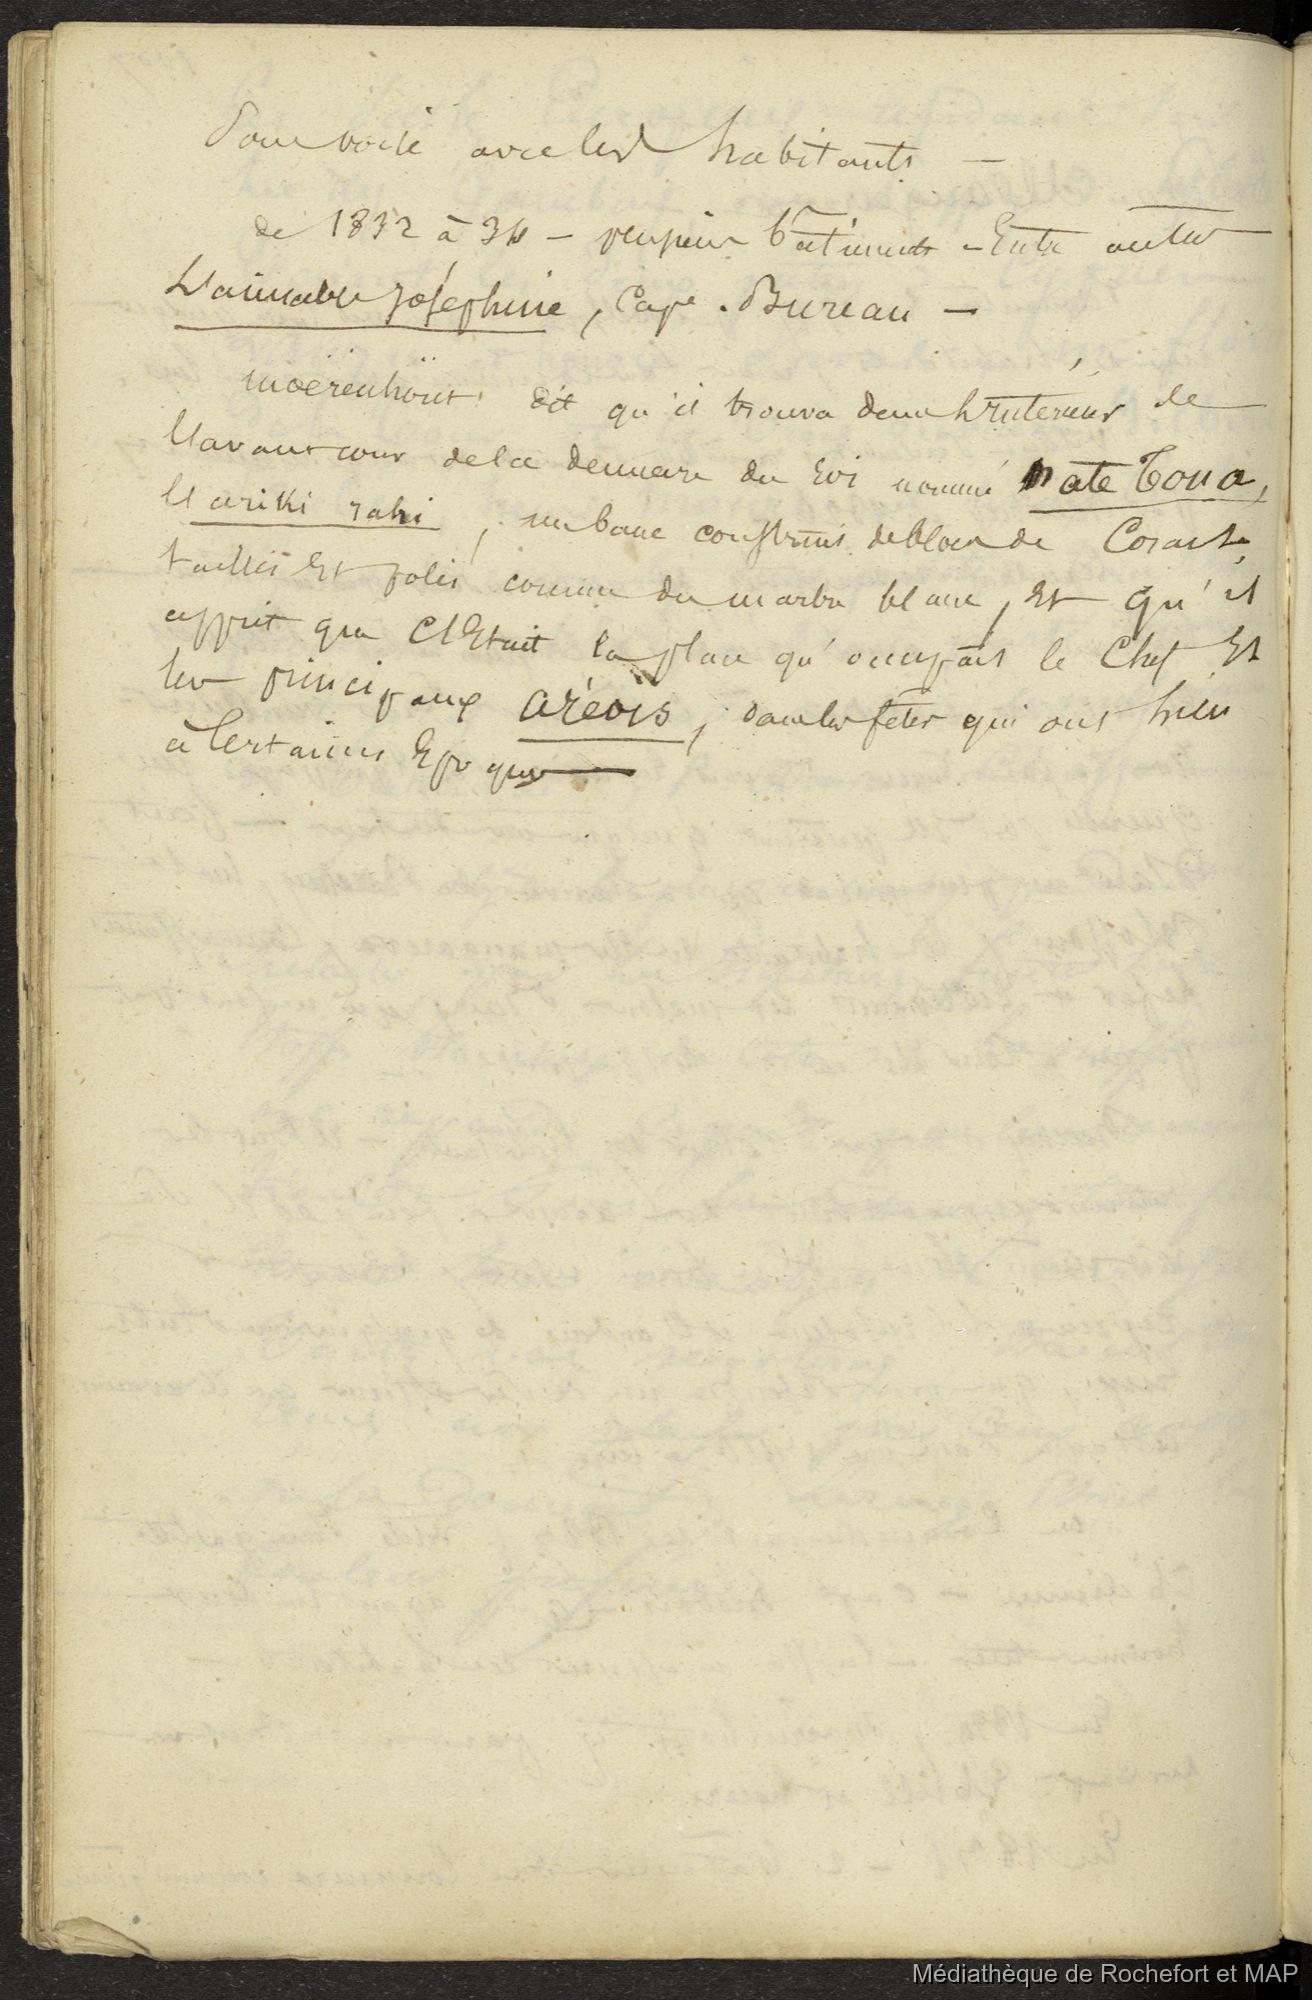 avec les habitants —
de 1832 à 34 — plusieurs bâtiments — Entre autres
L'aimable Joséphine, Cape. Bureau —
Moërenhout dit qu'il trouva dans l'intérieur de
l'avant cour de la demeure du Roi nommé Mate Toua,
l'ariki rahi, un banc construit de blocs de Corail
taillés Et polis comme du marbre blanc, Et qu'il
apprit que C'Etait la place qu'occupait le Chef Et
les principaux aréois, dans les fêtes qui ont lieu
à Certaines Epoques —
Médiathèque de Rochefort et MAP